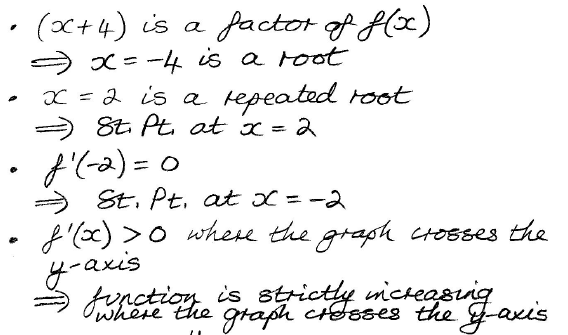 • (x+4) is a factor of f(x)
⇒ x = -4 is a root
• x = 2 is a repeated root
⇒ St. Pt. at x = 2
• f'(-2) = 0
⇒ St. Pt. at x = -2
• f'(x) > 0 where the graph crosses the
y-axis
⇒ function is strictly increasing
where the graph crosses the y-axis